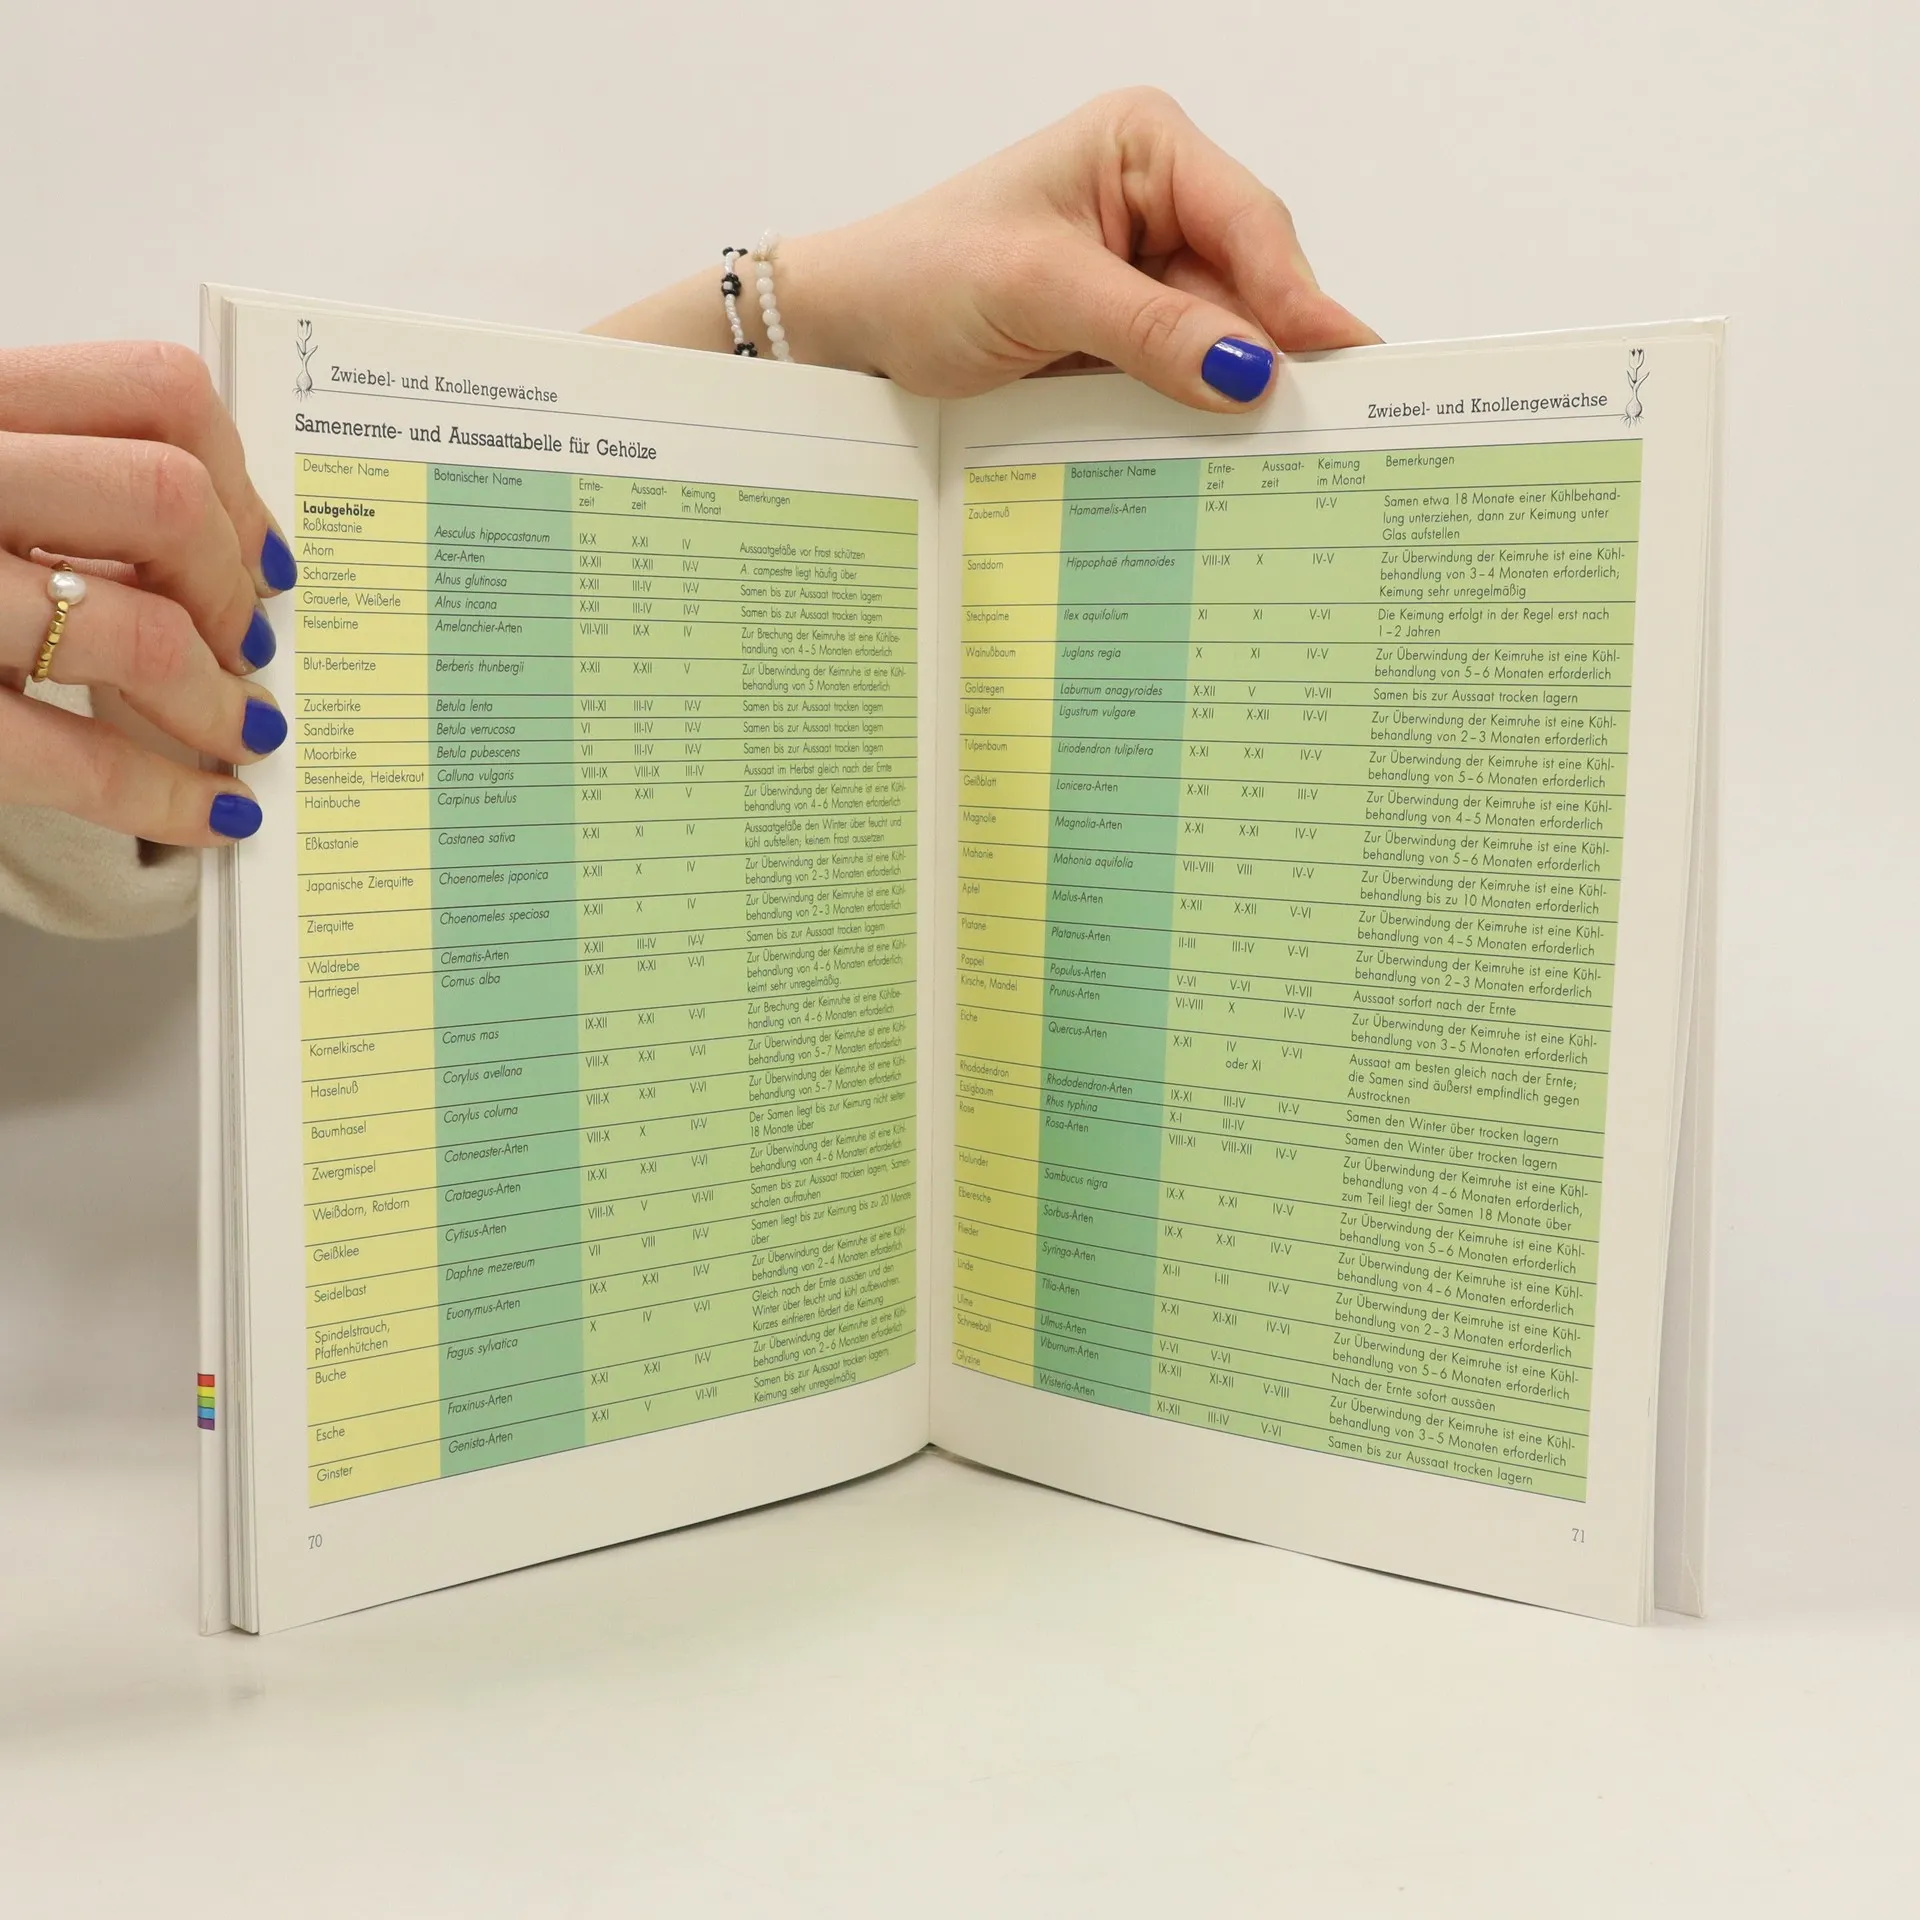 Zwiebel- und Knollengewächse
Samenernte- und Aussaattabelle für Gehölze
Deutscher Name Botanischer Name Ernte- Aussaat- Keimung Bemerkungen
zeit zeit im Monat
Laubgehölze
Roßkastanie Aesculus hippocastanum IX-X X-XI IV Aussaatgefäße vor Frost schützen
Ahorn Acer-Arten IX-XII IX-XII IV-V A. campestre liegt häufig über
Scharzerle Alnus glutinosa X-XII III-IV IV-V Samen bis zur Aussaat trocken lagern
Grauerle, Weißerle Alnus incana X-XII III-IV IV-V Samen bis zur Aussaat trocken lagern
Felsenbirne Amelanchier-Arten VII-VIII IX-X IV Zur Brechung der Keimruhe ist eine Kühlbe-
handlung von 4–5 Monaten erforderlich
Blut-Berberitze Berberis thunbergii X-XII X-XII V Zur Überwindung der Keimruhe ist eine Kühl-
behandlung von 5 Monaten erforderlich
Zuckerbirke Betula lenta VIII-XI III-IV IV-V Samen bis zur Aussaat trocken lagern
Sandbirke Betula verrucosa VI III-IV IV-V Samen bis zur Aussaat trocken lagern
Moorbirke Betula pubescens VII III-IV IV-V Samen bis zur Aussaat trocken lagern
Besenheide, Heidekraut Calluna vulgaris VIII-IX VIII-IX III-IV Aussaat im Herbst gleich nach der Ernte
Hainbuche Carpinus betulus X-XII X-XII V Zur Überwindung der Keimruhe ist eine Kühl-
behandlung von 4–6 Monaten erforderlich
Eßkastanie Castanea sativa X-XI XI IV Aussaatgefäße den Winter über feucht und
kühl aufstellen; keinem Frost aussetzen
Japanische Zierquitte Choenomeles japonica X-XII X IV Zur Überwindung der Keimruhe ist eine Kühl-
behandlung von 2–3 Monaten erforderlich
Zierquitte Choenomeles speciosa X-XII X IV Zur Überwindung der Keimruhe ist eine Kühl-
behandlung von 2–3 Monaten erforderlich
Waldrebe Clematis-Arten X-XII III-IV IV-V Samen bis zur Aussaat trocken lagern
Hartriegel Cornus alba IX-XI IX-XI V-VI Zur Überwindung der Keimruhe ist eine Kühl-
behandlung von 4–6 Monaten erforderlich,
keimt sehr unregelmäßig.
Kornelkirsche Cornus mas IX-XII X-XI V-VI Zur Brechung der Keimruhe ist eine Kühlbe-
handlung von 4–6 Monaten erforderlich
Haselnuß Corylus avellana VIII-X X-XI V-VI Zur Überwindung der Keimruhe ist eine Kühl-
behandlung von 5–7 Monaten erforderlich
Baumhasel Corylus columa VIII-X X-XI V-VI Zur Überwindung der Keimruhe ist eine Kühl-
behandlung von 5–7 Monaten erforderlich
Zwergmispel Cotoneaster-Arten VIII-X X IV-V Der Samen liegt bis zur Keimung nicht selten
18 Monate über
Weißdorn, Rotdorn Crataegus-Arten IX-XI X-XI V-VI Zur Überwindung der Keimruhe ist eine Kühl-
behandlung von 4–6 Monaten erforderlich
Geißklee Cytisus-Arten VIII-IX V VI-VII Samen bis zur Aussaat trocken lagern, Samen-
schalen aufrauhen
Seidelbast Daphne mezereum VII VIII IV-V Samen liegt bis zur Keimung bis zu 20 Monate
über
Spindelstrauch, Euonymus-Arten IX-X X-XI IV-V Zur Überwindung der Keimruhe ist eine Kühl-
Pfaffenhütchen behandlung von 2–4 Monaten erforderlich
Buche Fagus sylvatica X IV V-VI Gleich nach der Ernte aussäen und den
Winter über feucht und kühl aufbewahren.
Kurzes einfrieren fördert die Keimung
Esche Fraxinus-Arten X-XI X-XI IV-V Zur Überwindung der Keimruhe ist eine Kühl-
behandlung von 2–6 Monaten erforderlich
Ginster Genista-Arten X-XI V VI-VII Samen bis zur Aussaat trocken lagern,
Keimung sehr unregelmäßig
70
Zwiebel- und Knollengewächse
Deutscher Name Botanischer Name Ernte- Aussaat- Keimung Bemerkungen
zeit zeit im Monat
Zaubernuß Hamamelis-Arten IX-XI IV-V Samen etwa 18 Monate einer Kühlbehand-
lung unterziehen, dann zur Keimung unter
Glas aufstellen
Sanddorn Hippophaë rhamnoides VIII-IX X IV-V Zur Überwindung der Keimruhe ist eine Kühl-
behandlung von 3–4 Monaten erforderlich;
Keimung sehr unregelmäßig
Stechpalme Ilex aquifolium XI XI V-VI Die Keimung erfolgt in der Regel erst nach
1–2 Jahren
Walnußbaum Juglans regia X XI IV-V Zur Überwindung der Keimruhe ist eine Kühl-
behandlung von 5–6 Monaten erforderlich
Goldregen Laburnum anagyroides X-XII V VI-VII Samen bis zur Aussaat trocken lagern
Liguster Ligustrum vulgare X-XII X-XII IV-VI Zur Überwindung der Keimruhe ist eine Kühl-
behandlung von 2–3 Monaten erforderlich
Tulpenbaum Liriodendron tulipifera X-XI X-XI IV-V Zur Überwindung der Keimruhe ist eine Kühl-
behandlung von 5–6 Monaten erforderlich
Geißblatt Lonicera-Arten X-XII X-XII III-V Zur Überwindung der Keimruhe ist eine Kühl-
behandlung von 4–5 Monaten erforderlich
Magnolie Magnolia-Arten X-XI X-XI IV-V Zur Überwindung der Keimruhe ist eine Kühl-
behandlung von 5–6 Monaten erforderlich
Mahonie Mahonia aquifolia VII-VIII VIII IV-V Zur Überwindung der Keimruhe ist eine Kühl-
behandlung bis zu 10 Monaten erforderlich
Apfel Malus-Arten X-XII X-XII V-VI Zur Überwindung der Keimruhe ist eine Kühl-
behandlung von 4–5 Monaten erforderlich
Platane Platanus-Arten II-III III-IV V-VI Zur Überwindung der Keimruhe ist eine Kühl-
behandlung von 2–3 Monaten erforderlich
Pappel Populus-Arten V-VI V-VI VI-VII Aussaat sofort nach der Ernte
Kirsche, Mandel Prunus-Arten VI-VIII X IV-V Zur Überwindung der Keimruhe ist eine Kühl-
behandlung von 3–5 Monaten erforderlich
Eiche Quercus-Arten X-XI IV V-VI Aussaat am besten gleich nach der Ernte;
oder XI die Samen sind äußerst empfindlich gegen
Austrocknen
Rhododendron Rhododendron-Arten IX-XI III-IV IV-V Samen den Winter über trocken lagern
Essigbaum Rhus typhina X-I III-IV Samen den Winter über trocken lagern
Rose Rosa-Arten VIII-XI VIII-XII IV-V Zur Überwindung der Keimruhe ist eine Kühl-
behandlung von 4–6 Monaten erforderlich,
zum Teil liegt der Samen 18 Monate über
Holunder Sambucus nigra IX-X X-XI IV-V Zur Überwindung der Keimruhe ist eine Kühl-
behandlung von 5–6 Monaten erforderlich
Eberesche Sorbus-Arten IX-X X-XI IV-V Zur Überwindung der Keimruhe ist eine Kühl-
behandlung von 4–6 Monaten erforderlich
Flieder Syringa-Arten XI-II I-III IV-V Zur Überwindung der Keimruhe ist eine Kühl-
behandlung von 2–3 Monaten erforderlich
Linde Tilia-Arten X-XI XI-XII IV-VI Zur Überwindung der Keimruhe ist eine Kühl-
behandlung von 5–6 Monaten erforderlich
Ulme Ulmus-Arten V-VI V-VI Nach der Ernte sofort aussäen
Schneeball Viburnum-Arten IX-XII XI-XII V-VIII Zur Überwindung der Keimruhe ist eine Kühl-
behandlung von 3–5 Monaten erforderlich
Glyzine Wisteria-Arten XI-XII III-IV V-VI Samen bis zur Aussaat trocken lagern
71